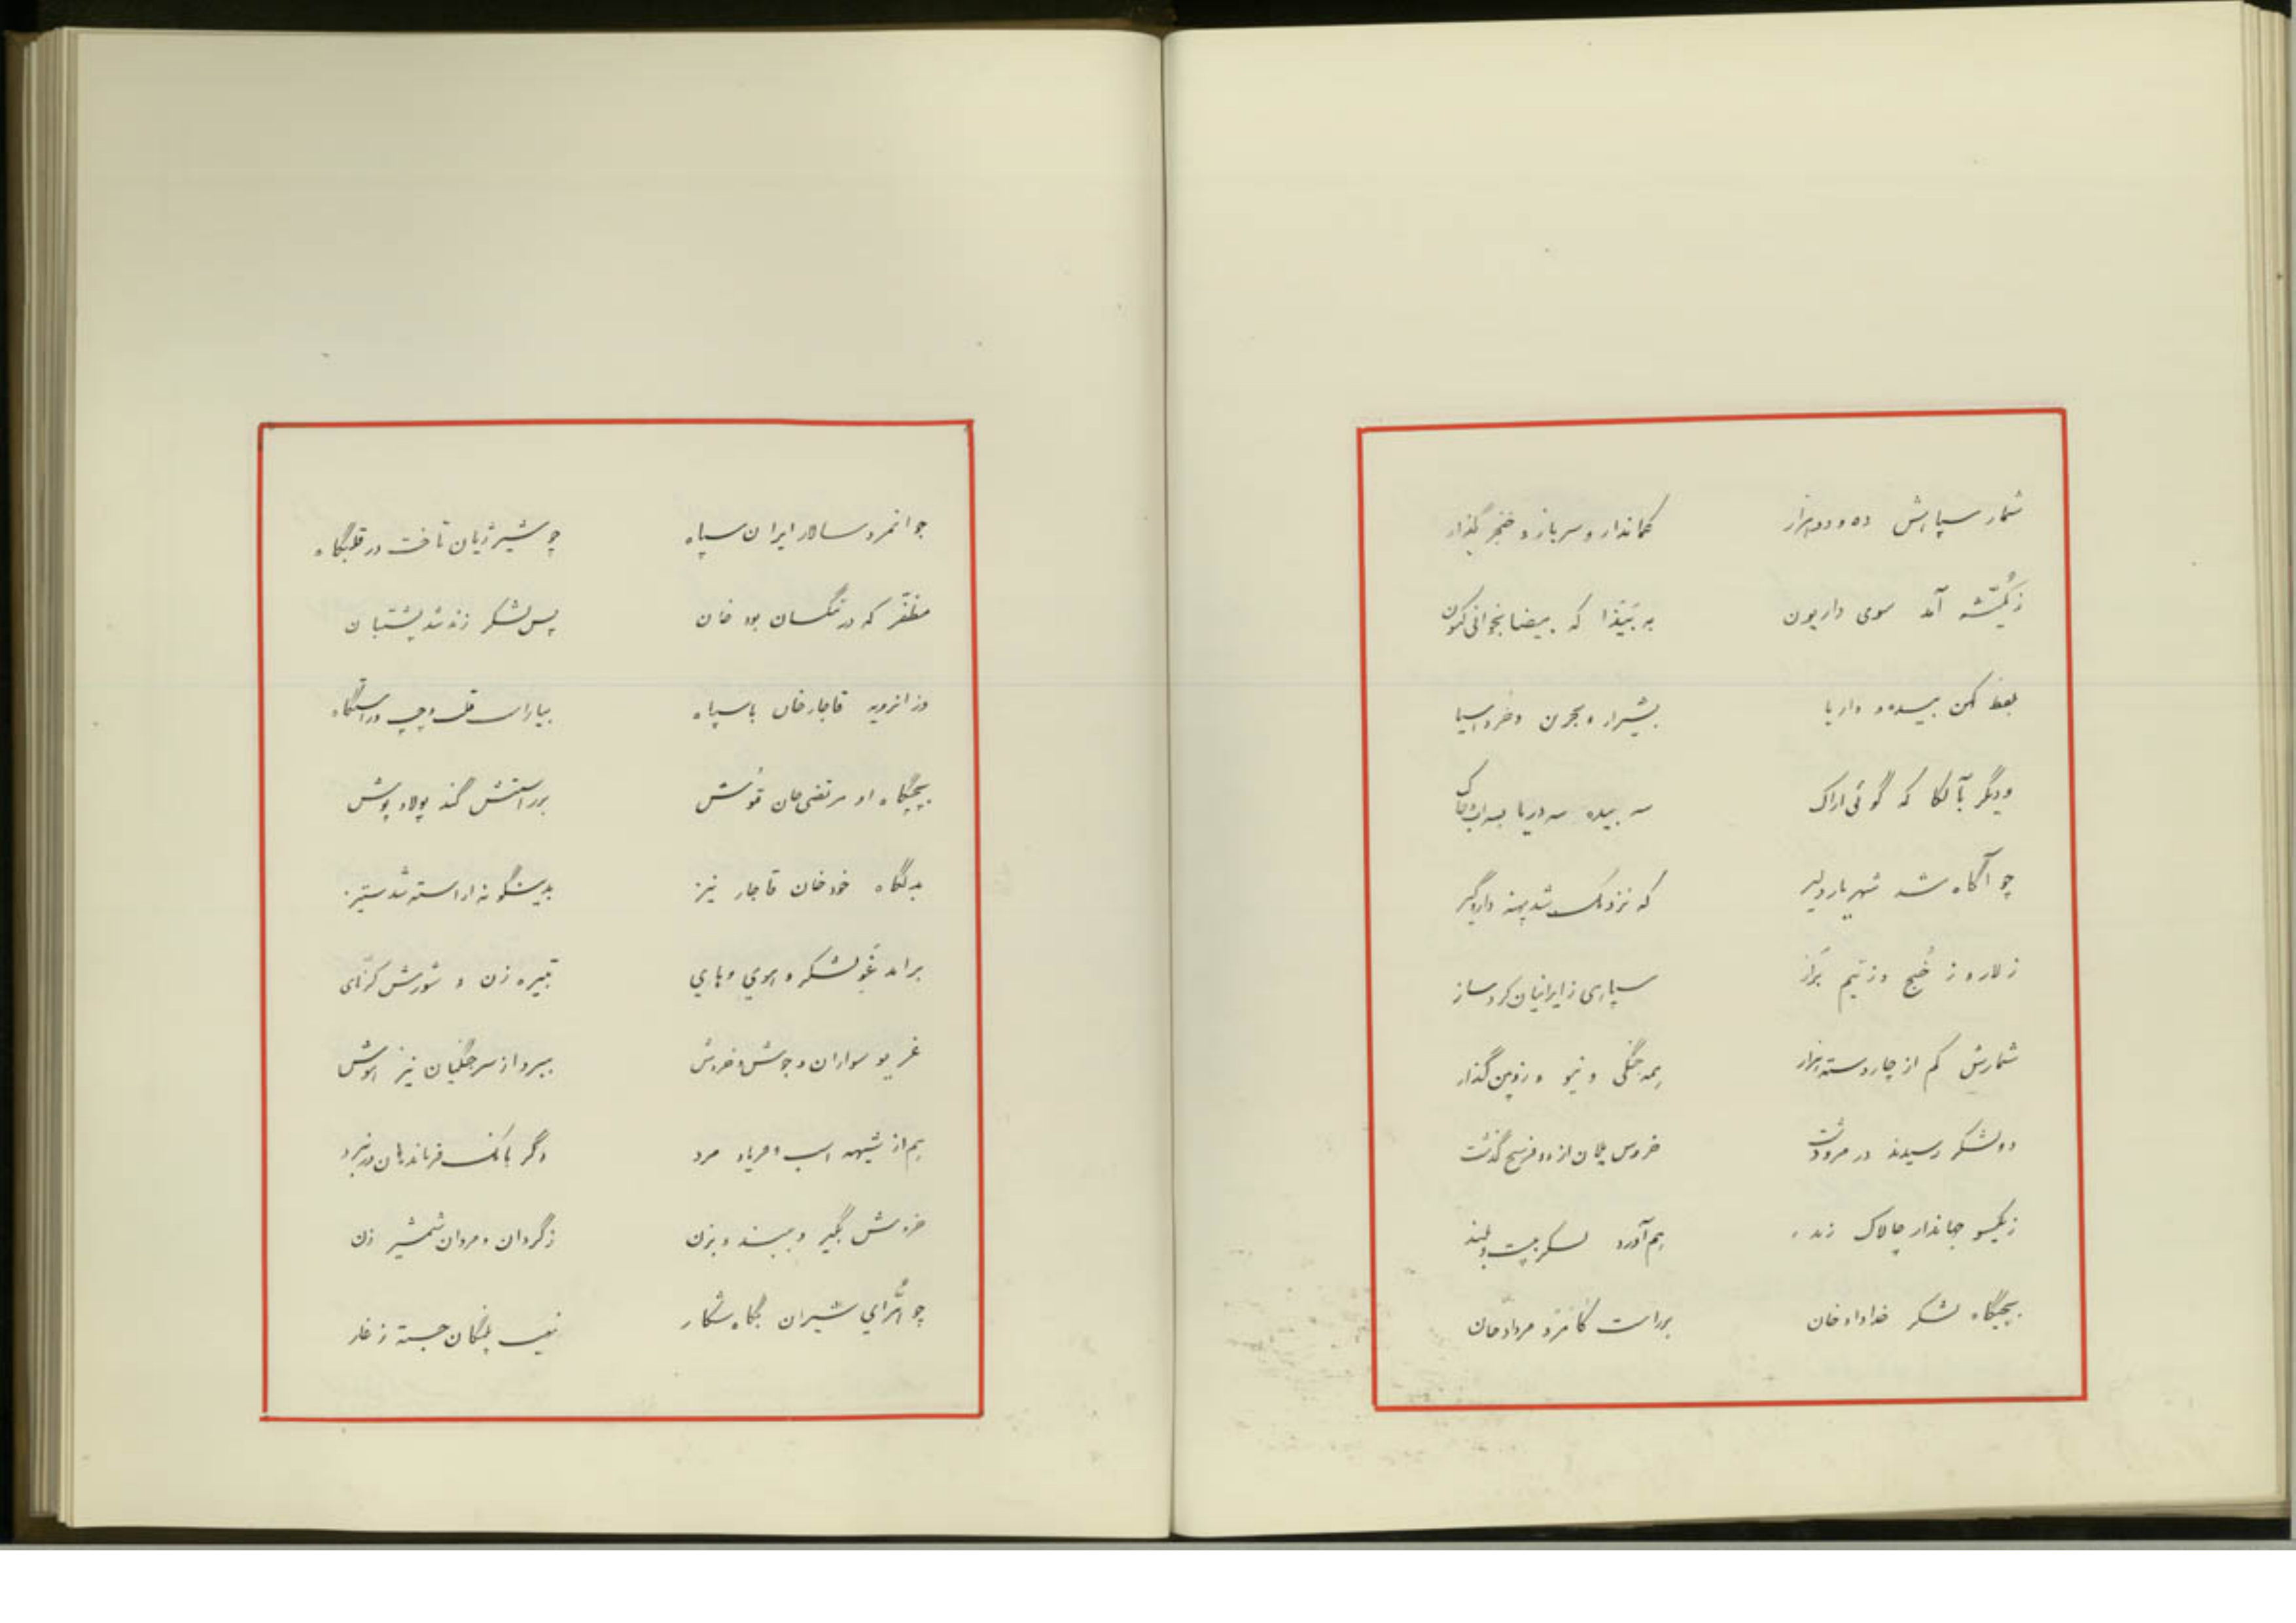 شمار سپاهش ده و دو هزار    کماندار و سرباز و خنجر گذار
ز کمیشه آمد سوی داریون    به بَیذا که بیضا بخوانی کنون
بلفظ کهن بیده و داریا
ودیگر با لکا که گوئی اراک    سه بیده سه دریا
چو آگاه شد شهریار دلیر    که نزدیک شد پهنه داروگیر
ز لار و ز خُنج وز تیم    سپاهی ز ایرانیان کرد ساز
شمارش کم از چار دسته هزار    همه جنگی و نیو و زوپین گذار
دو لشکر رسیدند در مرودشت    خروش یلان از دو فرسخ گذشت
ز یکسو جهاندار چالاک زند    بهم آورد لشکر پست و بلند
بچپگاه لشکر خداداد خان    برراست مرداد خان
جوانمرد سالار ایران سپاه    چو شیر ژیان تاخت در قلبگاه
مظفّر که در تنگسان بود خان    پس لشکر زند شد پشتبان
وز انرویه قاجار خان با سپاه    بیاراست قلب و چپ و راستگاه
بچپگاه او مرتضی خان    برراستش گند پولاد پوش
بدلگاه خود خان قاجار نیز    بدینگونه اراسته شد ستیز
برامد غَو لشکر و هوی و های    تبیره زن و شورش کرّنای
غریو سواران و جوش و خروش    ببرد از سر جنگیان نیز هوش
هم از شیهه اسب و فریاد مرد    دگر بانک فرماندهان در نبرد
خروش بگیر و ببند و بزن    ز گردان و مردان شمشیر زن
چو هُرّای شیران بگاه شکار    نهیب پلنگان جسته ز غار